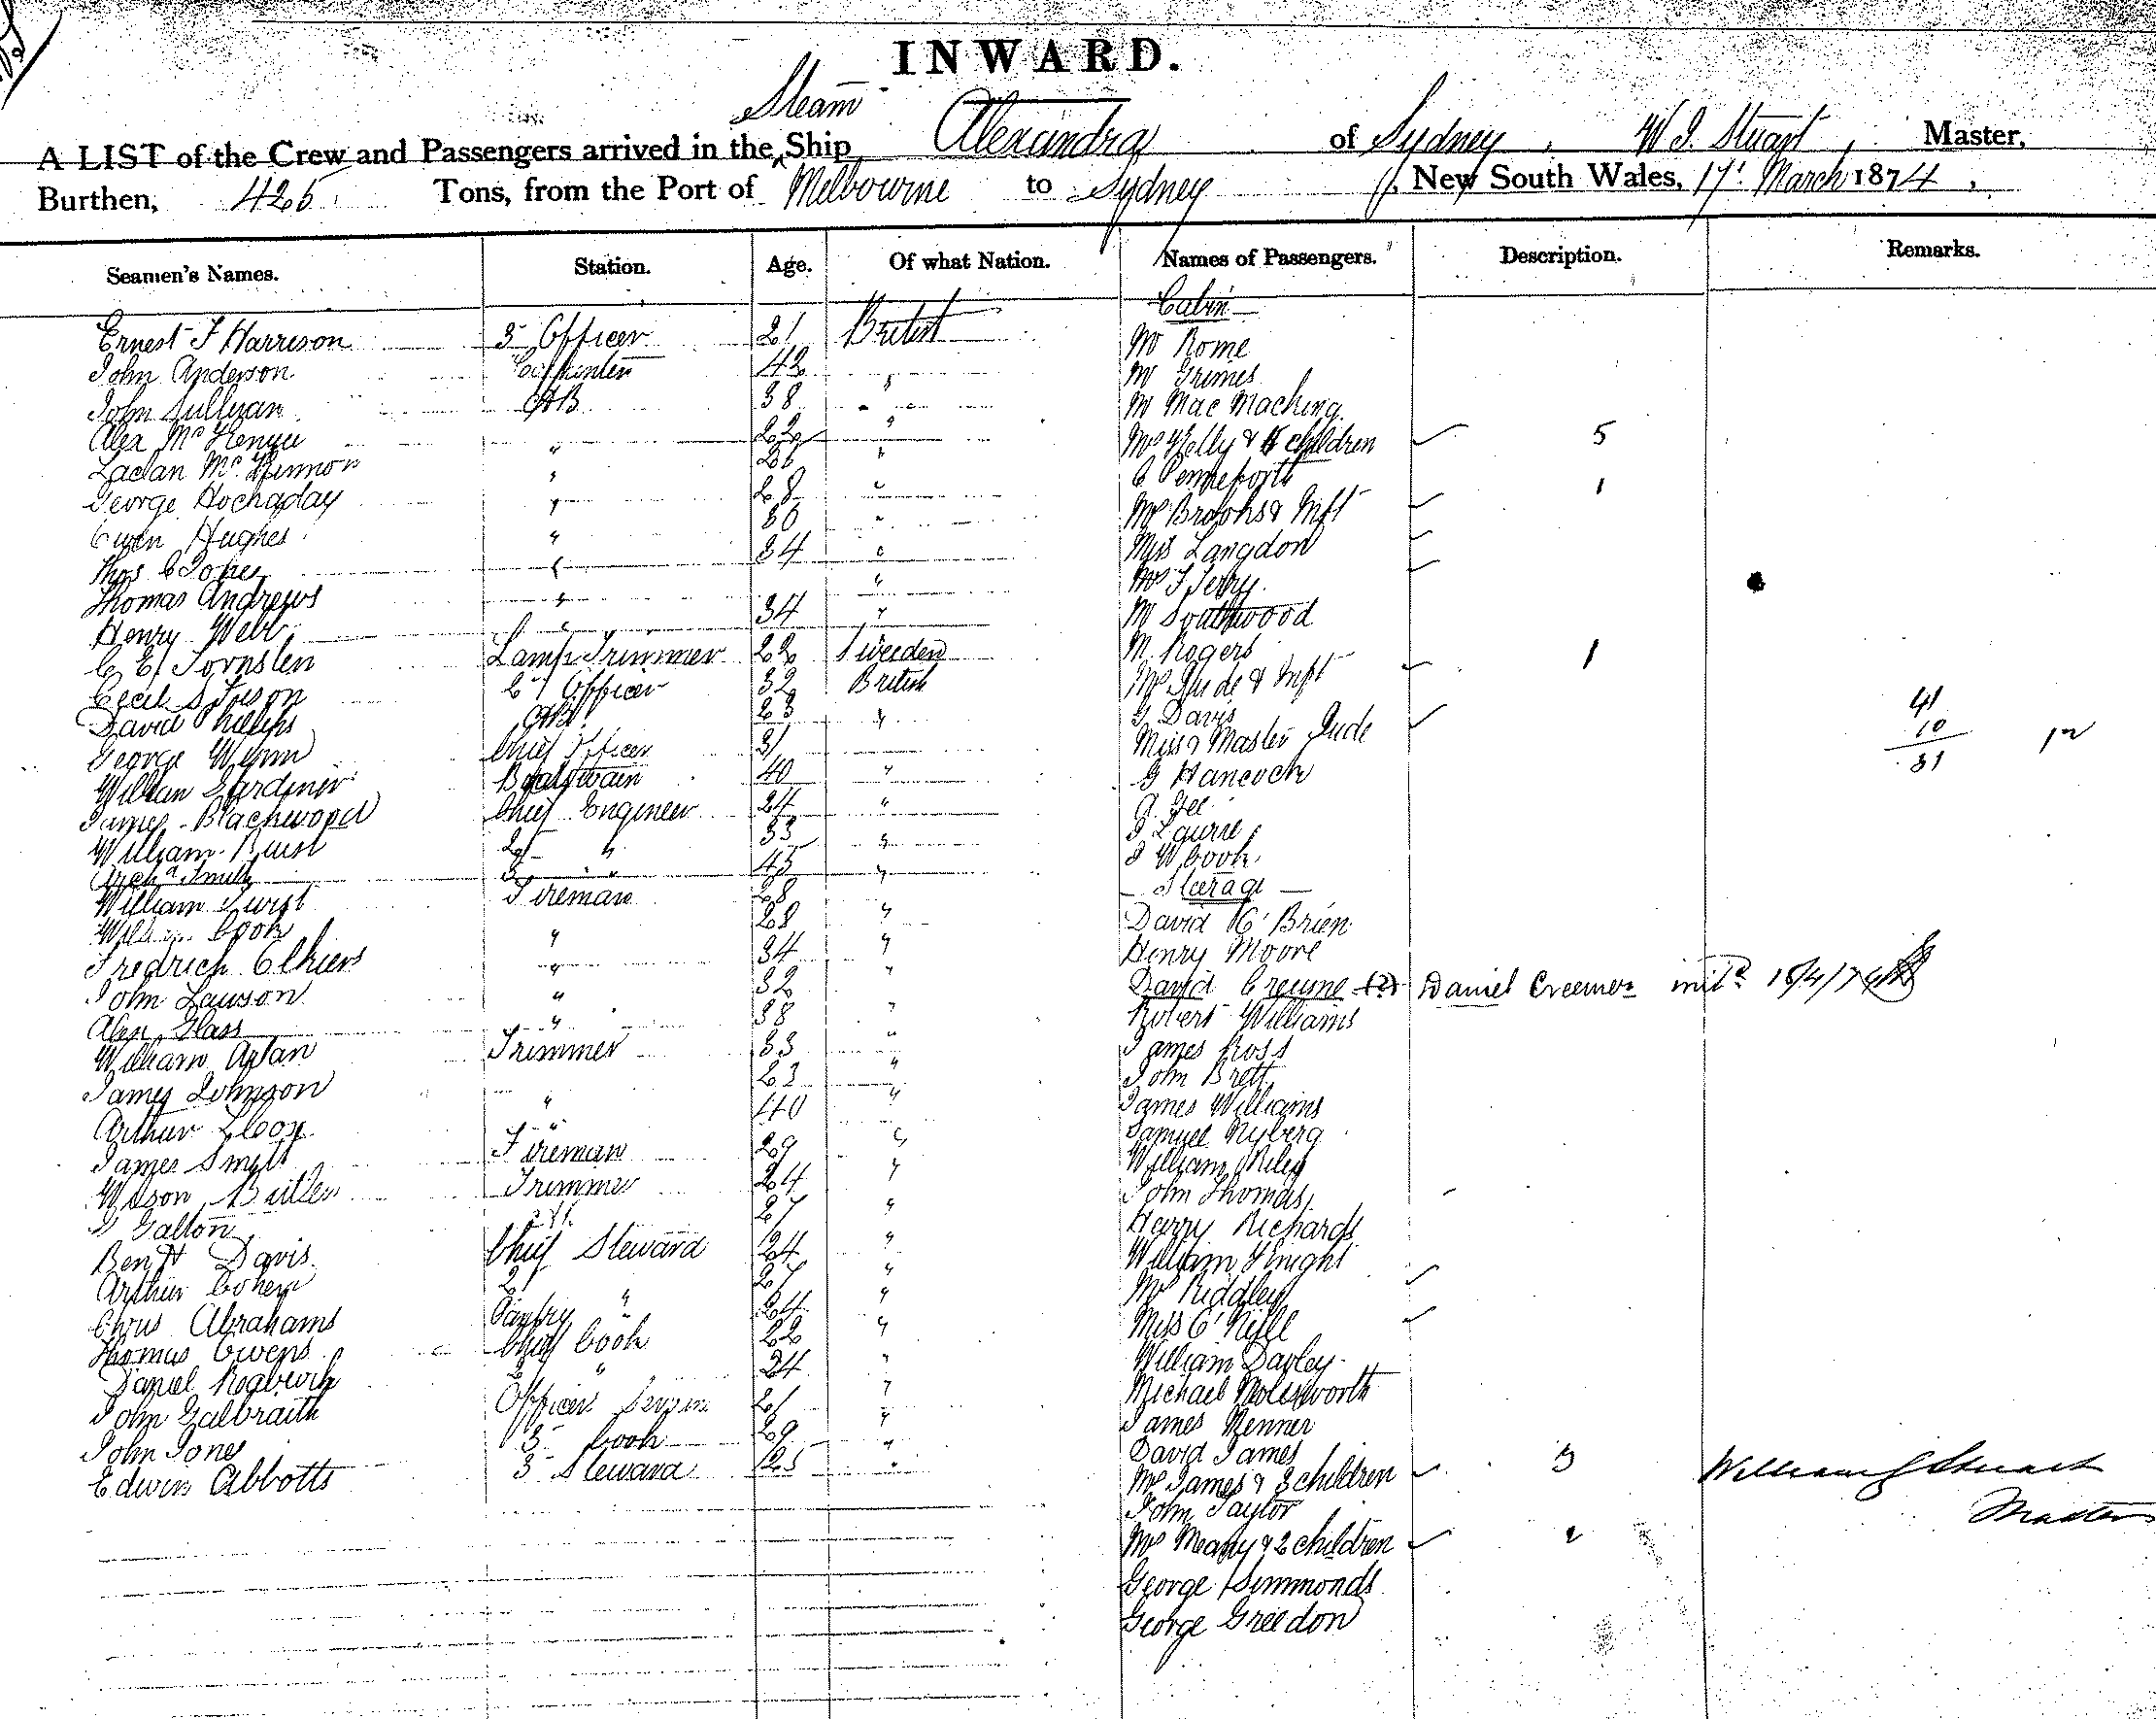 INWARD.
Steam
A LIST of the Crew and Passengers arrived in the ^ Ship Alexandra of Sydney, W J Stuart, Master,
Burthen, 425 Tons, from the Port of Melbourne to Sydney, New South Wales, 17 March 1874,
Seamen's Names. Station. Age. Of what Nation. Names of Passengers. Description. Remarks.
Cabin
Ernest F Harrison 3 Officer 21 British Mr Rome
John Anderson Carpenter 42 Mr Grimes
John Sullivan AB 38 " Mr Mac
Alex Mc " 22 " Mrs Kelly & children 5
Laclan McKinnon " 26 " C Penneforth
George Hockaday " 28 " Mrs Brooks & Inft 1
Owen Hughes " 36 " Miss Langdon
Thos C Jones " 34 " Mrs
Thomas Andrews " " Mr Southwood
Henry Webb " 34 " M. Rogers
C E Tornslen Lamp Trimmer 22 Sweeden Mrs Jude & Inft 1
Cecil S Fison 2 Officer 32 British G Davis
David Phillips AB 23 " Miss & Master Jude
George Wynn Chief Officer 31 G Hancock
41
10
31
William Gardiner Boatswain 40 " A. Gee
James Blackwood Chief Engineer 24 " J Laurie
William Buist 2 " 33 " J W Cook
Archd Smith 3 " 45 " — Sterage —
William Turst Fireman 28 David O'Brien
William Cook " 28 " Henry Moore
Fredrich " 34 " David Creume (?) Daniel Creemer 18/4/74
John Lawson " 32 " Robert Williams
Alex Glass " 38 " James Ross
William Trimmer 33 " John Brett
James Johnson " 23 " James Williams
Arthur " 40 " Samuel Nyberg
James Smith Fireman 29 " William Riley
Wilson Butler Trimmer 24 " John Thomas
J Gallon 27 " Harry Richards
Ben H Davis Chief Steward 24 " William Knight
Arthur Cohen 2 " 27 " Mrs Riddley
Chrus Abrahams Pantry " 24 " Miss O'Niell
Thomas Owens Chief Cook 22 " William Darley
Daniel 2 " 24 " Michael Molesworth
John Galbraith Officers 21 " James Kenner
John Jones 3 Cook 29 " David James
Edwin Abbotts 3 Steward 25 " Mrs James & 3 children 3 William J Stuart
John Taylor Master
Mrs Meany & 2 children 2
George Simmonds
George Greedon